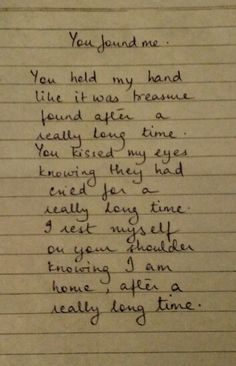 You found me.
You held my hand
like it was treasure
found after a
really long time.
You kissed my eyes
knowing they had
cried for a
really long time.
I rest myself
on your shoulder
knowing I am
home, after a
really long time.